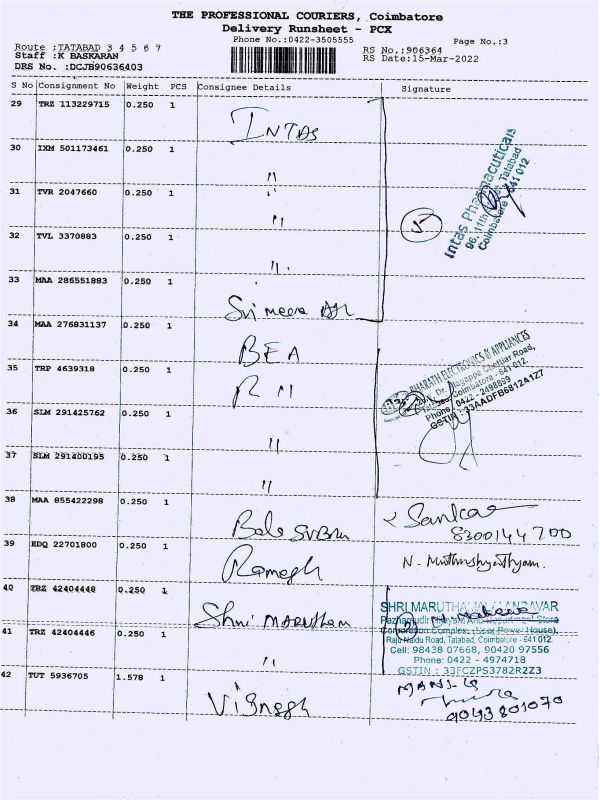 THE PROFESSIONAL COURIERS, Coimbatore
Delivery Runsheet - PCX
Phone No.:0422-3505555
Page No.:3
Route :TATABAD 3 4 5 6 7
Staff :K BASKARAN
DRS No. :DCJB90636403
RS No.:906364
RS Date:15-Mar-2022
S No Consignment No Weight PCS Consignee Details Signature
29 TRZ 113229715 0.250 1 INTAS
30 IXM 501173461 0.250 1 "
31 TVR 2047660 0.250 1 "
32 TVL 3370883 0.250 1 "
33 MAA 286551883 0.250 1 Sri meera
34 MAA 276831137 0.250 1 BEA
35 TRP 4639318 0.250 1
36 SLM 291425762 0.250 1 "
37 SLM 291400195 0.250 1 "
38 MAA 855422298 0.250 1 Bala
39 EDQ 22701800 0.250 1 Ramesh
40 TRZ 42404448 0.250 1 Shri MARUTham
41 TRZ 42404446 0.250 1 "
42 TUT 5936705 1.578 1 Vignesh
Intas Pharmaceuticals
96, 11th Tatabad
Coimbatore - 641 012
5
BHARATH ELECTRONICS & APPLIANCES
Dr. Alagappa Chettiar Road,
Coimbatore - 641 012.
Phone : 0422 - 2498899
GSTIN : 33AADFB6812A1Z7
Sankar
8300144700
N.
SHRI MARUTHA
Pazhamudir Nilayam And Department Store
Corporation Complex, (Near Power House),
Raju Naidu Road, Tatabad, Coimbatore - 641 012.
Cell: 98438 07668, 90420 97556
Phone: 0422 - 4974718
GSTIN : 33FCZPS3782R2Z3
9043801070